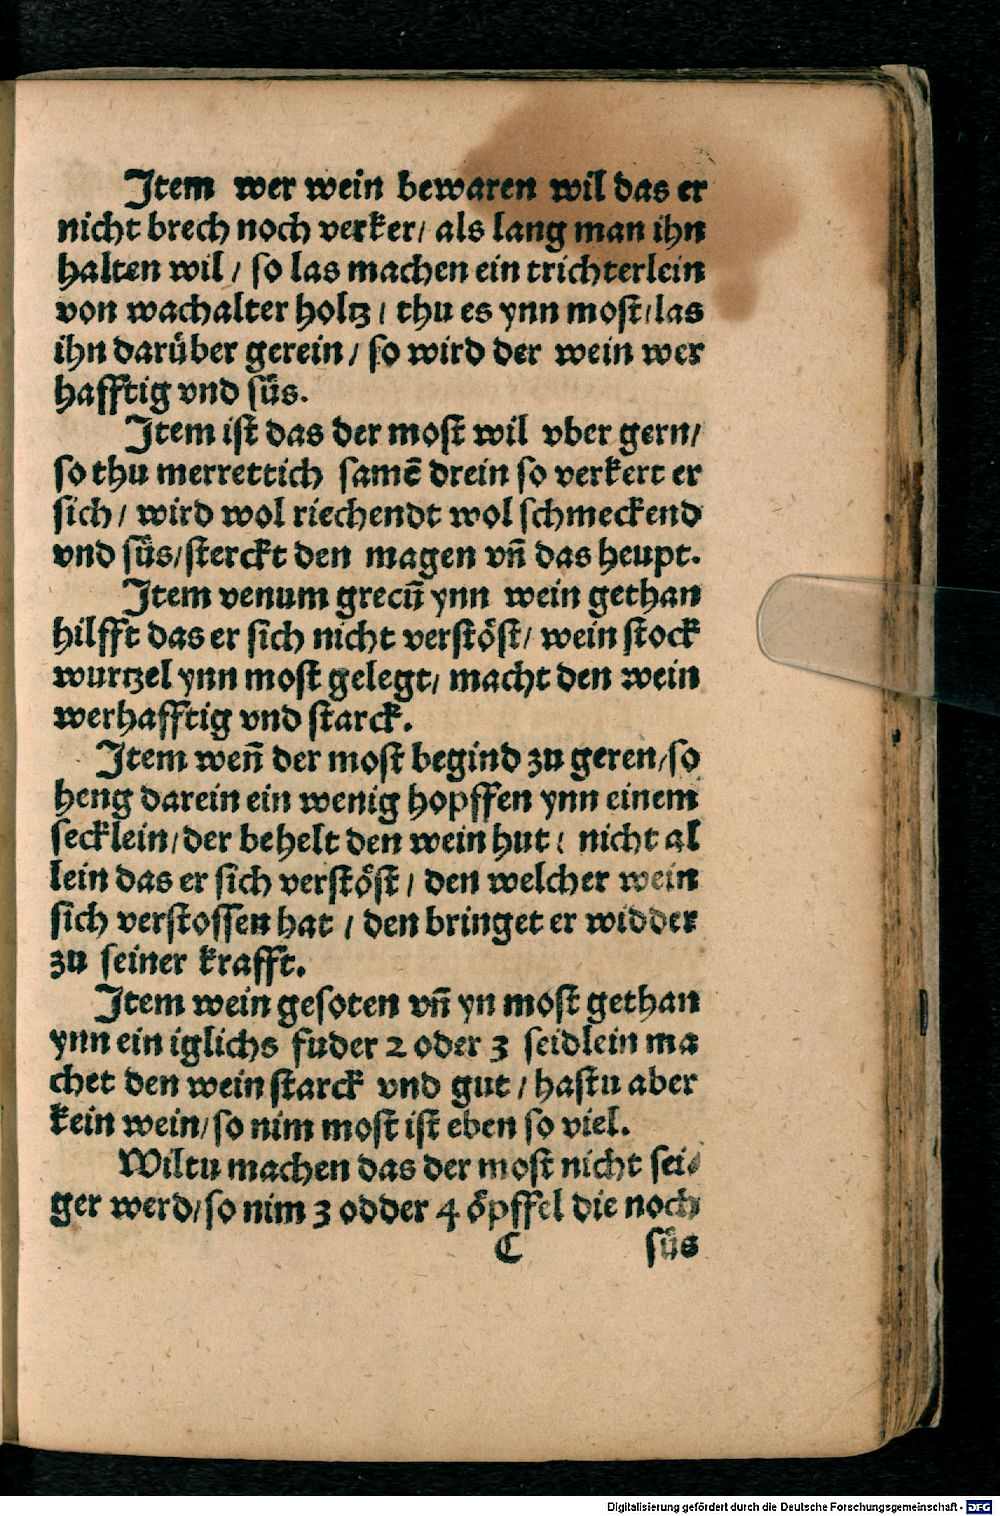 Item wer wein bewaren wil das er
nicht brech noch verker/ als lang man ihn
halten wil / so las machen ein trichterlein
von wachalter holtz / thu es ynn most/las
ihn darüber gerein / so wird der wein wer
hafftig vnd süs.
Item ist das der most wil vber gern/
so thu merrettich samē drein so verkert er
sich / wird wol riechendt wol schmeckend
vnd süs/sterckt den magen vn̄ das heupt.
Item venum grecū ynn wein gethan
hilfft das er sich nicht verstöst/ wein stock
wurtzel ynn most gelegt/ macht den wein
werhafftig vnd starck.
Item wen̄ der most begind zu geren/so
heng darein ein wenig hopffen ynn einem
secklein/der behelt den wein hut / nicht al
lein das er sich verstöst / den welcher wein
sich verstossen hat / den bringet er widder
zu seiner krafft.
Item wein gesoten vn̄ yn most gethan
ynn ein iglichs fuder 2 oder 3 seidlein ma
chet den wein starck vnd gut / hastu aber
kein wein/so nim most ist eben so viel.
Wiltu machen das der most nicht sei⸗
ger werd/so nim 3 odder 4 öpffel die noch
C süs
Digitalisierung gefördert durch die Deutsche Forschungsgemeinschaft - DFG